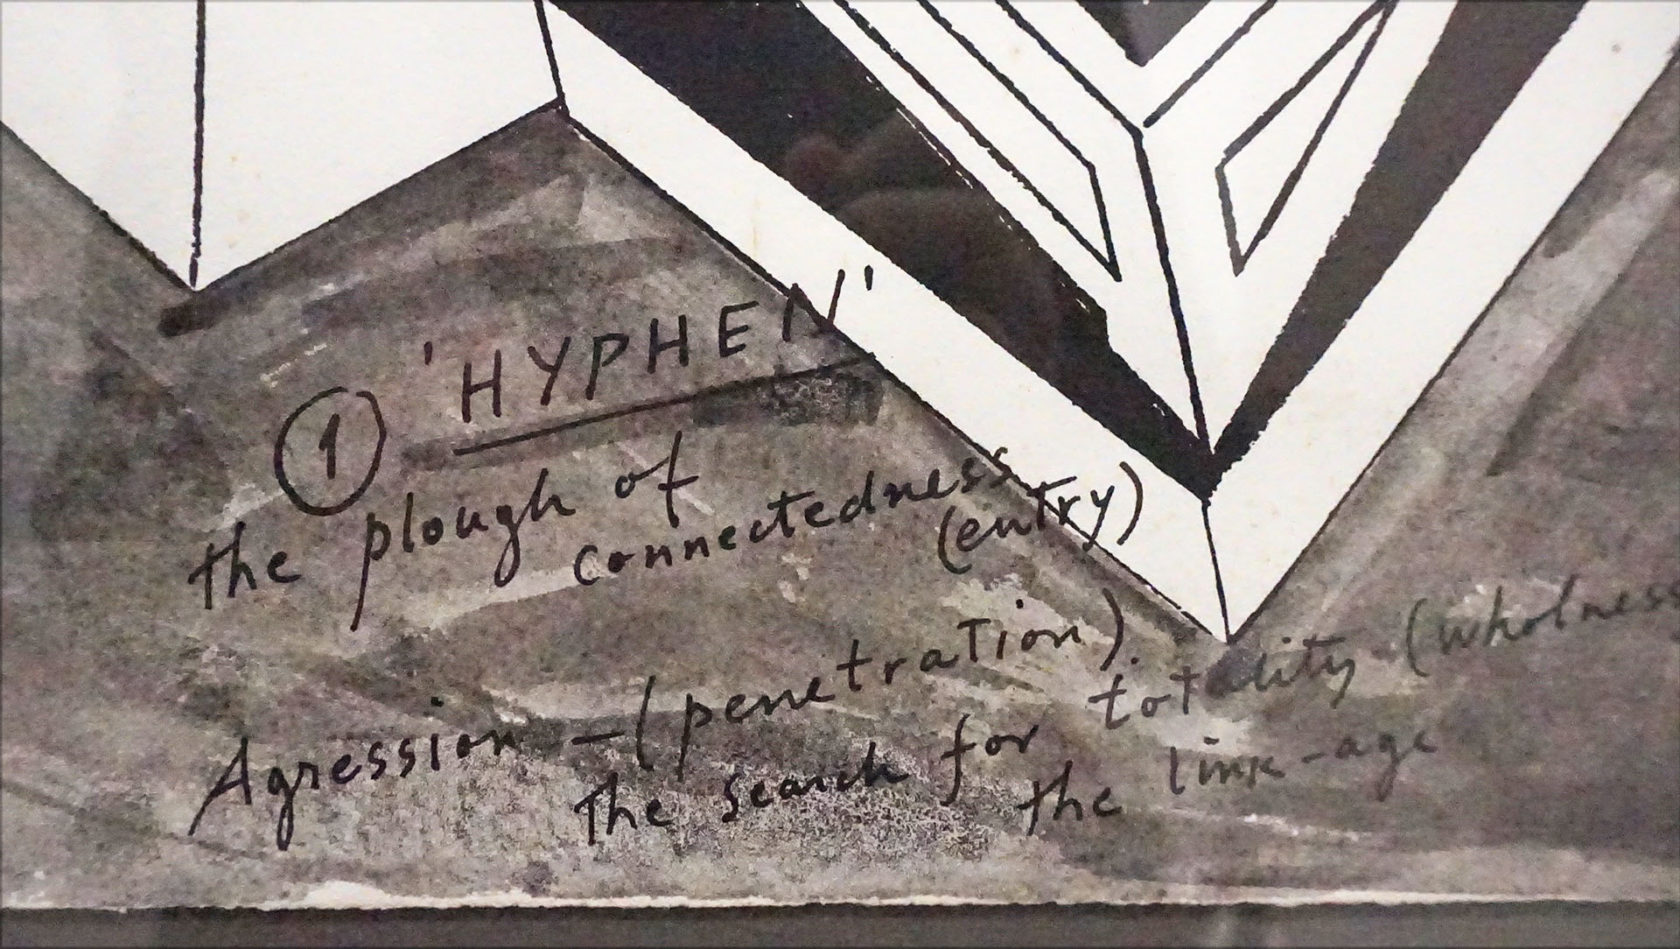 ① 'HYPHEN'
the plough of
connectedness
(entry)
Agression – (penetration).
the search for totality (wholness
the link-age